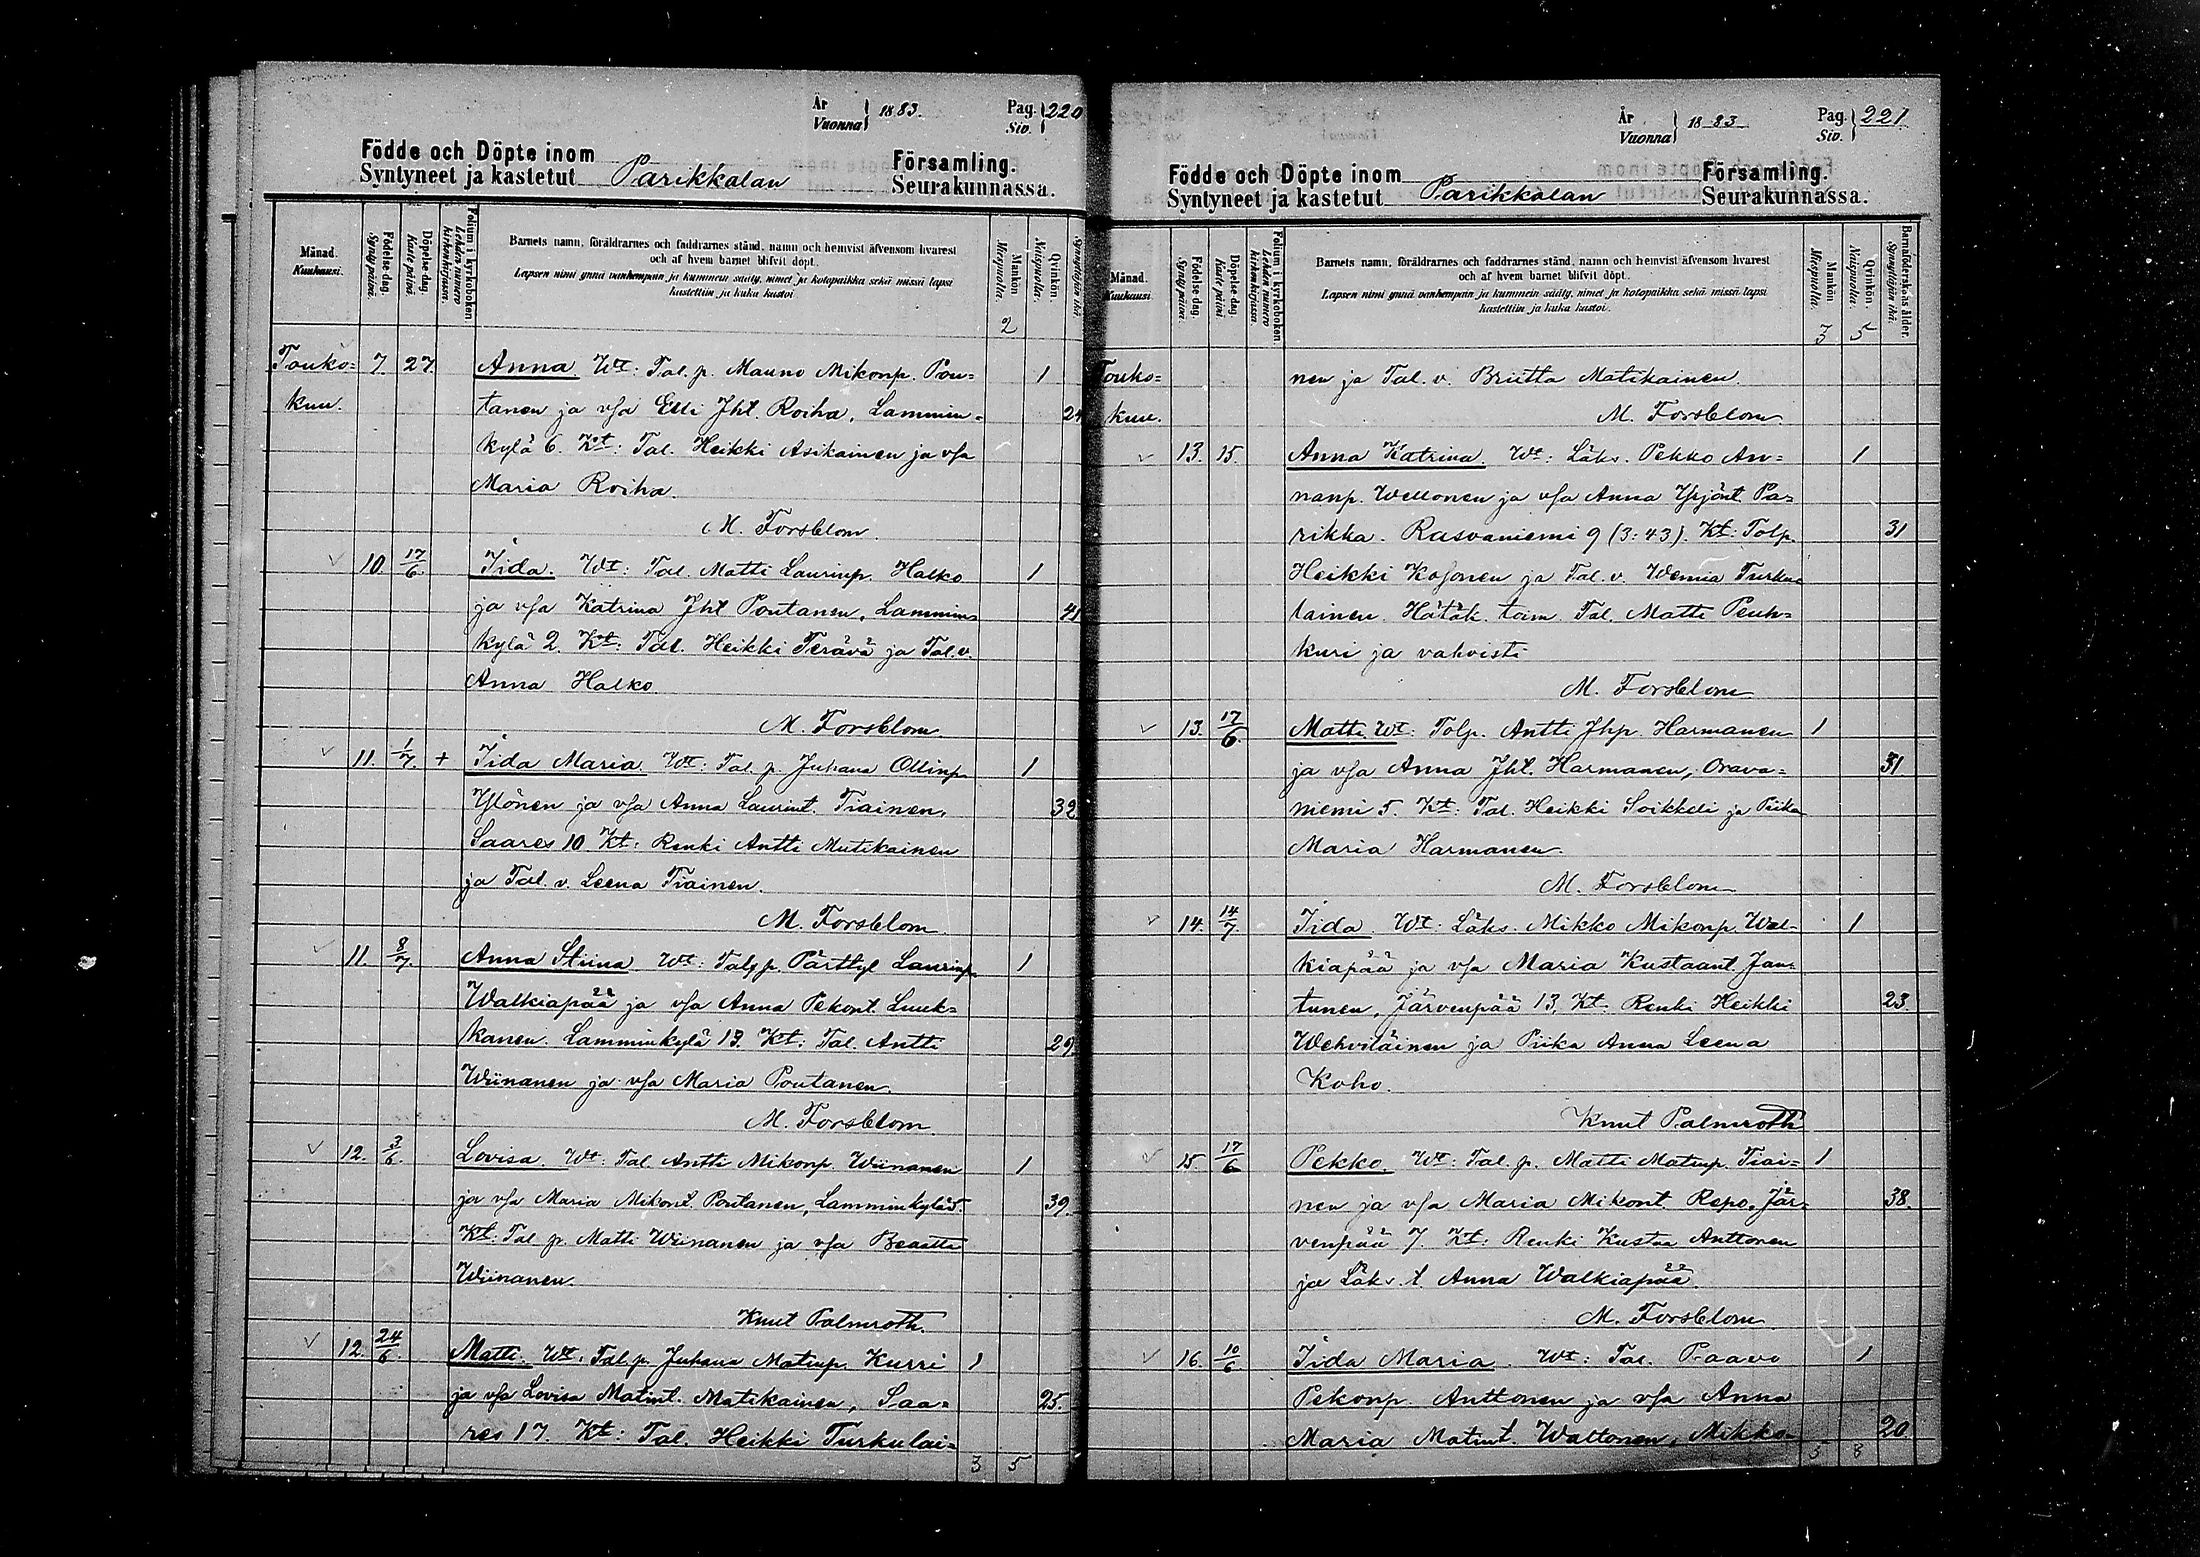 År
Vuonna } 1883.
Pag.
Siv. } 220
Födde och Döpte inom
Syntyneet ja kastetut Parikkalan Församling.
Seurakunnassa.
Månad.
Kuukausi.
Födelse dag.
Synty päivä.
Döpelse dag.
Kaste päivä.
Folium i kyrkoboken.
Lehden numero kirkonkirjassa.
Barnets namn, föräldrarnes och faddrarnes stånd, namn och hemvist äfvensom hvarest
och af hvem barnet blifvit döpt.
Lapsen nimi ynnä vanhempain ja kummein sääty, nimet ja kotopaikka sekä missä lapsi
kastettiin ja kuka kastoi
Mankön
Miespuolia.
Qvinkön
Naispuolia.
Synnyttäjän ikä.
2
Touko= 7. 27. Anna. Wt: Tal. p. Mauno Mikonp. Pou= 1
kuu. tanen ja vsa Elli Jht. Roiha, Lammin= 24
kylä 6. Kt: Tal. Heikki Asikainen ja vsa
Maria Roiha.
M. Forsblom.
10. 17/6 Iida. Wt: Tal. Matti Laurinp. Halko 1
ja vsa Katrina Jht Poutanen, Lammin= 41
kylä 2. Kt: Tal. Heikki Terävä ja Tal. v.
Anna Halko
M. Forsblom.
11. 1/7. + Iida Maria. Wt: Tal. p. Juhana Ollinp. 1
Ylönen ja vsa Anna Laurint. Tiainen, 32
Saares 10 Kt: Renki Antti Mutikainen
ja Tal. v. Leena Tiainen.
M. Forsblom.
11. 8/7. Anna Stiina Wt: Tal. p. Pärttyl Laurinp. 1
Walkiapää ja vsa Anna Pekont. Luuk=
kanen. Lamminkylä 13. Kt: Tal. Antti 29
Wiinanen ja vsa Maria Poutanen.
M. Forsblom.
12. 3/6. Lovisa. Wt: Tal. Antti Mikonp. Wiinanen 1
ja vsa Maria Mikont. Poutanen, Lamminkylä 39.
Kt: Tal. p. Matti Wiinanen ja vsa Beaatta
Wiinanen.
Knut Palmroth.
12. 24/6. Matti. Wt: Tal. p. Juhana Matinp. Kurri 1
ja vsa Lovisa Matint. Matikainen, Saa= 25.
res 17. Kt: Tal. Heikki Turkulai=
3 5
År
Vuonna } 1883
Pag.
Siv. } 221
Födde och Döpte inom
Syntyneet ja kastetut Parikkalan Församling.
Seurakunnassa.
Månad.
Kuukausi.
Födelse dag.
Synty päivä.
Döpelse dag.
Kaste päivä.
Folium i kyrkoboken.
Lehden numero kirkonkirjassa.
Barnets namn, föräldrarnes och faddrarnes stånd, namn och hemvist äfvensom hvarest
och af hvem barnet blifvit döpt.
Lapsen nimi ynnä vanhempain ja kummein sääty, nimet ja kotopaikka sekä missä lapsi
kastettiin ja kuka kastoi.
Mankön
Miespuolia.
Qvinkön
Naispuolia.
Barnaföderskans ålder.
Synnyttäjän ikä.
3 5
Touko= nen ja Tal. v. Briitta Matikainen.
kuu. M. Forsblom.
13. 15. Anna Katrina. Wt: Läks. Pekko An= 1
nanp. Wellonen ja vsa Anna Yrjönt Pa=
rikka. Rasvaniemi 9 (3:43). Kt: Tolp. 31
Heikki Kosonen ja Tal. v. Wenia Turku
lainen. Hätäk. toim. Tal. Matti Peuh=
kuri ja vahvisti
M. Forsblom
13. 17/6. Matti Wt: Tolp. Antti Jhp. Harmanen 1
ja vsa Anna Jht. Harmanen, Orava= 31
niemi 5. Kt: Tal. Heikki Soikkeli ja Piika
Maria Harmanen.
M. Forsblom
14. 14/7 Iida. Wt: Läks. Mikko Mikonp. Wal- 1
kiapää ja vsa Maria Kustaant. Jan=
tunen, Järvenpää 13, Kt. Renki Heikki 23.
Wehviläinen ja Piika Anna Leena
Koho.
Knut Palmroth
15 17/6 Pekko. Wt: Tal. p. Matti Matinp. Tiai= 1
nen ja vsa Maria Mikont. Repo, Jär= 38.
venpää 7. Kt: Renki Kustaa Anttonen
ja Läks. t Anna Walkiapää.
M. Forsblom
16. 10/6 Iida Maria. Wt: Tal. Paavo 1
Pekonp. Anttonen ja vsa Anna
Maria Matint. Waltonen, Mikko= 20.
5 8